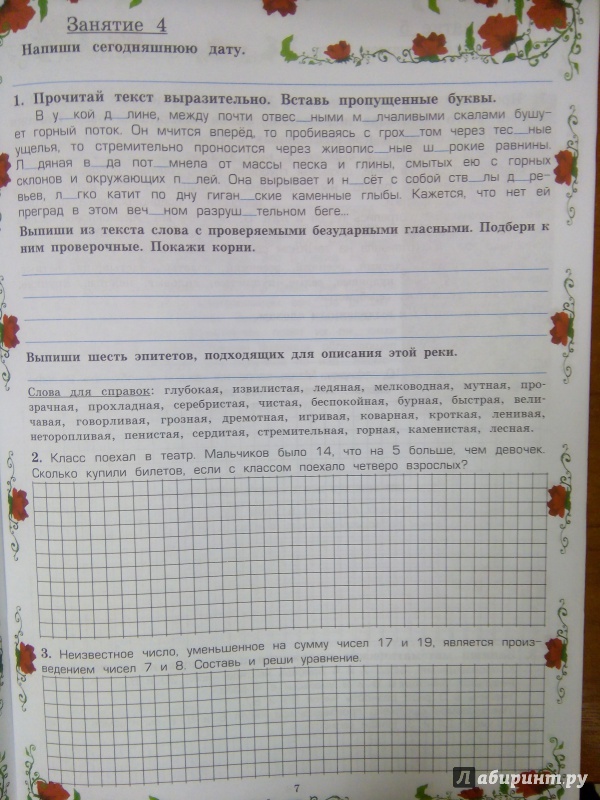 Занятие 4
Напиши сегодняшнюю дату.
1. Прочитай текст выразительно. Вставь пропущенные буквы.
В у__кой д__лине, между почти отвес__ными м__лчаливыми скалами бушу-
ет горный поток. Он мчится вперёд, то пробиваясь с грох__том через тес__ные
ущелья, то стремительно проносится через живопис__ные ш__рокие равнины.
Л__дяная в__да пот__мнела от массы песка и глины, смытых ею с горных
склонов и окружающих п__лей. Она вырывает и н__сёт с собой ств__лы д__ре-
вьев, л__гко катит по дну гиган__ские каменные глыбы. Кажется, что нет ей
преград в этом веч__ном разруш__тельном беге...
Выпиши из текста слова с проверяемыми безударными гласными. Подбери к
ним проверочные. Покажи корни.
Выпиши шесть эпитетов, подходящих для описания этой реки.
Слова для справок: глубокая, извилистая, ледяная, мелководная, мутная, про-
зрачная, прохладная, серебристая, чистая, беспокойная, бурная, быстрая, вели-
чавая, говорливая, грозная, дремотная, игривая, коварная, кроткая, ленивая,
неторопливая, пенистая, сердитая, стремительная, горная, каменистая, лесная.
2. Класс поехал в театр. Мальчиков было 14, что на 5 больше, чем девочек.
Сколько купили билетов, если с классом поехало четверо взрослых?
3. Неизвестное число, уменьшенное на сумму чисел 17 и 19, является произ-
ведением чисел 7 и 8. Составь и реши уравнение.
7
Лабиринт.ру